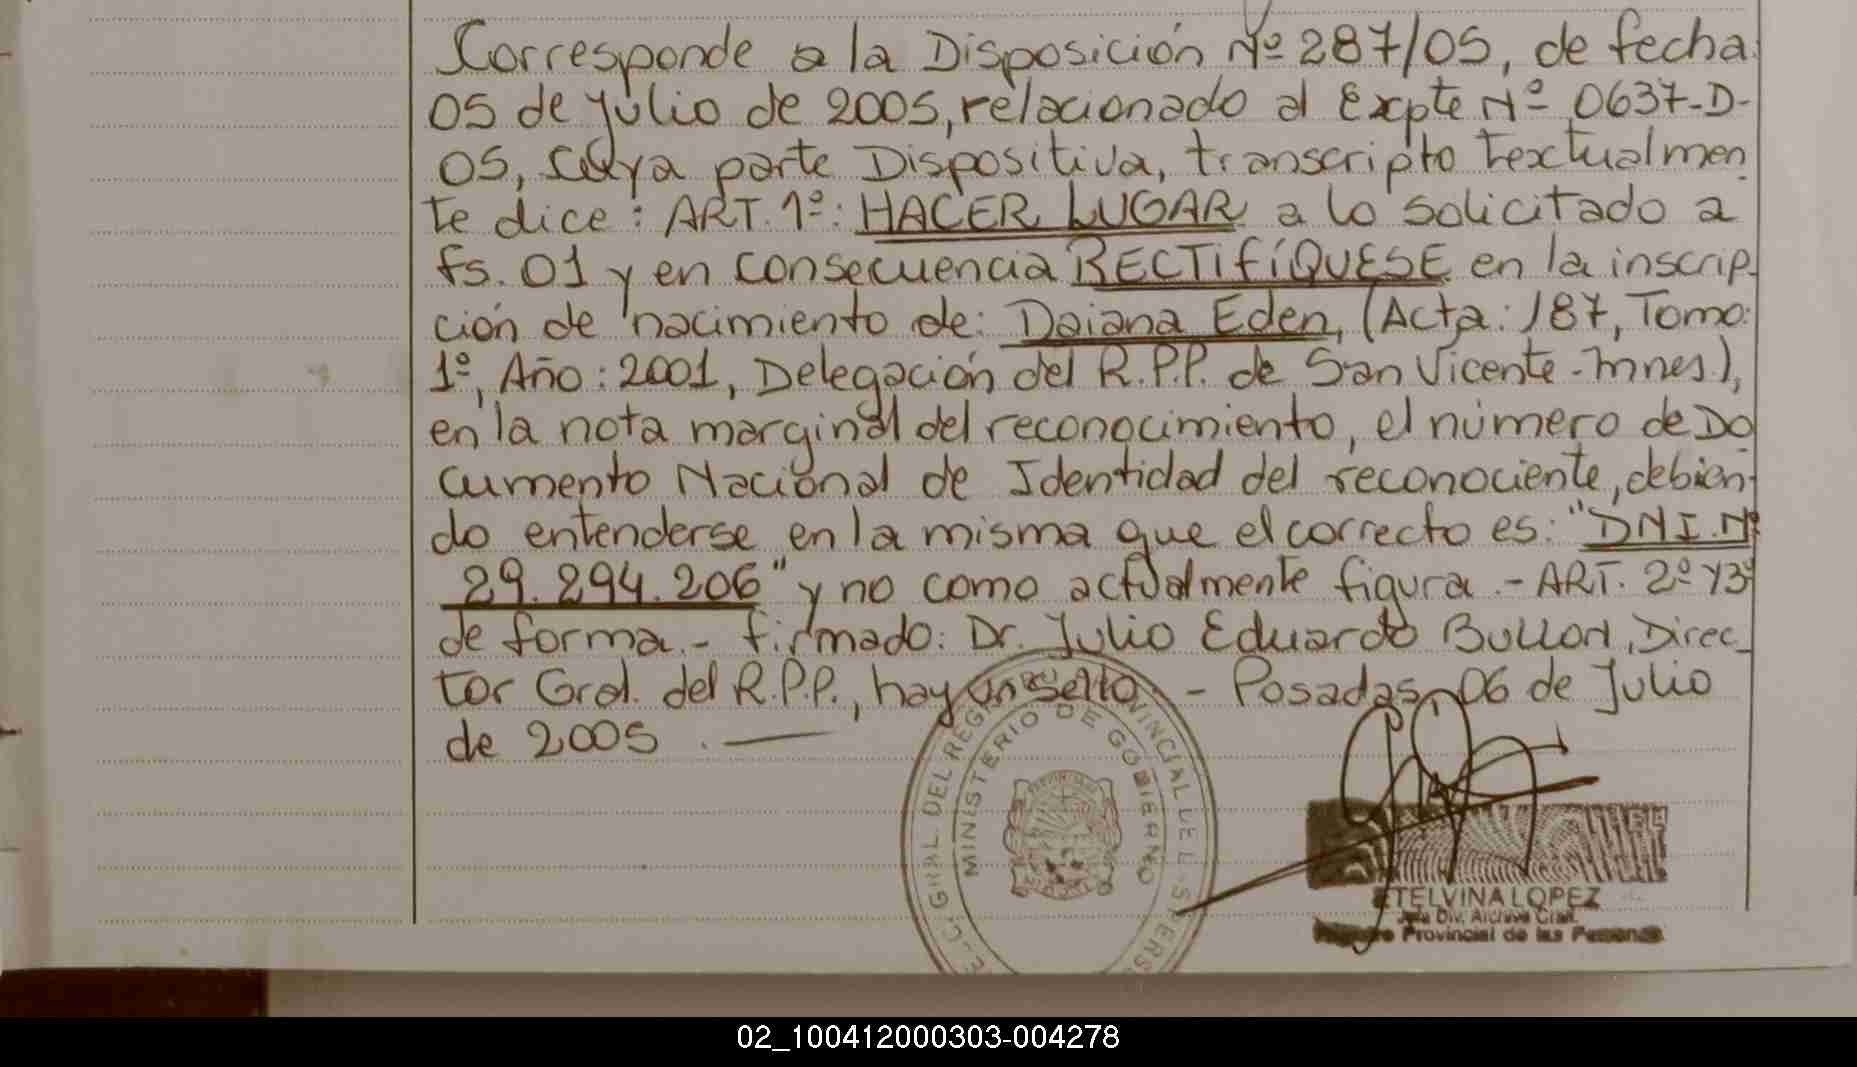 Corresponde a la Disposición Nº 287/05, de fecha
05 de julio de 2005, relacionado al Expte Nº 0637-D-
05, cuya parte Dispositiva, transcripto textualmen
te dice: ART. 1º: HACER LUGAR a lo solicitado a
fs. 01 y en consecuencia RECTIFÍQUESE en la inscrip
ción de nacimiento de: Daiana Eden, (Acta: 187, Tomo:
1º, Año: 2001, Delegación del R.P.P. de San Vicente - Mnes),
en la nota marginal del reconocimiento, el número de Do
cumento Nacional de Identidad del reconociente, debien-
do entenderse en la misma que el correcto es: "DNI. Nº
29.294.206" y no como actualmente figura.- ART. 2º y 3º
de forma.- firmado: Dr. Julio Eduardo Bullon, Direc_
tor Gral. del R.P.P., hay un sello. - Posadas, 06 de Julio
de 2005. —
GRAL. DEL REG
PROVINCIAL DE L
MINISTERIO DE GOBIERNO
ETELVINA LOPEZ
Jefa Div. Archivo Gral.
Provincial de las Personas
02_100412000303-004278